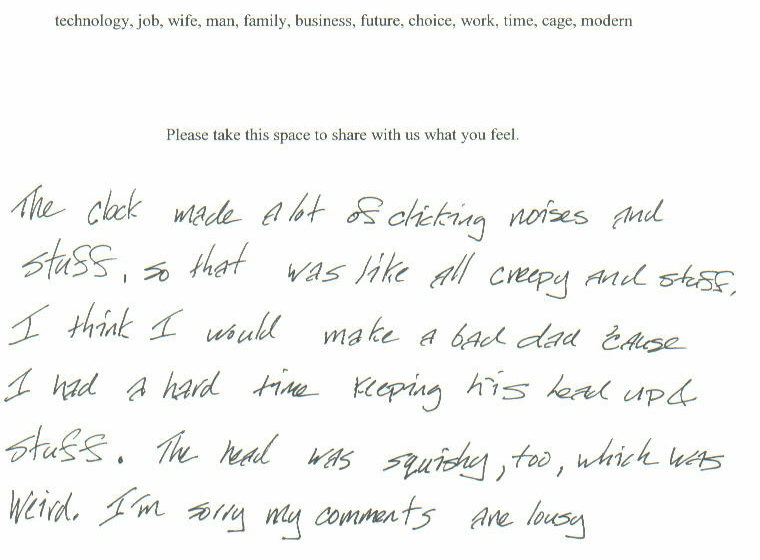 technology, job, wife, man, family, business, future, choice, work, time, cage, modern
Please take this space to share with us what you feel.
The clock made a lot of clicking noises and
stuff, so that was like all creepy and stuff.
I think I would make a bad dad 'cause
I had a hard time keeping his head up &
stuff. The head was squishy, too, which was
weird. I'm sorry my comments are lousy